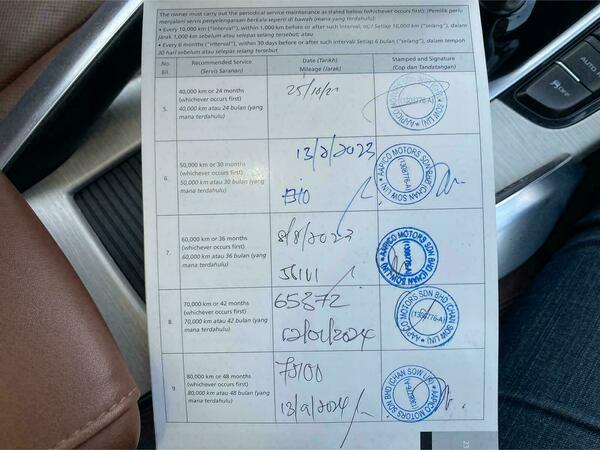 The owner must carry out the periodical service maintenance as stated below (whichever occurs first): (Pemilik perlu
menjalani servis penyelenggaraan berkala seperti di bawah (mana yang terdahulu):
• Every 10,000 km ("interval"), within 1,000 km before or after such interval; or / Setiap 10,000 km ("selang"), dalam
jarak 1,000 km sebelum atau selepas selang tersebut; atau
• Every 6 months ("interval"), within 30 days before or after such interval/ Setiap 6 bulan ("selang"), dalam tempoh
30 hari sebelum atau selepas selang tersebut
No.
Bil.
Recommended Service
(Servis Saranan)
Date (Tarikh)
Mileage (Jarak)
Stamped and Signature
(Cop dan Tandatangan)
5.
40,000 km or 24 months
(whichever occurs first)
40,000 km atau 24 bulan (yang
mana terdahulu)
25/10/21
(1308776-A)
6.
50,000 km or 30 months
(whichever occurs first)
50,000 km atau 30 bulan (yang
mana terdahulu)
13/2/2023
AAPICO MOTORS SDN BHD (CHAN SOW LIN)
(1308776-A)
7.
60,000 km or 36 months
(whichever occurs first)
60,000 km atau 36 bulan (yang
mana terdahulu)
8/8/2023
56111
AAPICO MOTORS SDN BHD (CHAN SOW LIN)
(1308776-A)
8.
70,000 km or 42 months
(whichever occurs first)
70,000 km atau 42 bulan (yang
mana terdahulu)
65372
12/01/2024
AAPICO MOTORS SDN BHD (CHAN SOW LIN)
(1308776-A)
9.
80,000 km or 48 months
(whichever occurs first)
80,000 km atau 48 bulan (yang
mana terdahulu)
13/9/2024
AAPICO MOTORS SDN BHD (CHAN SOW LIN)
(1308776-A)
23
AUTO